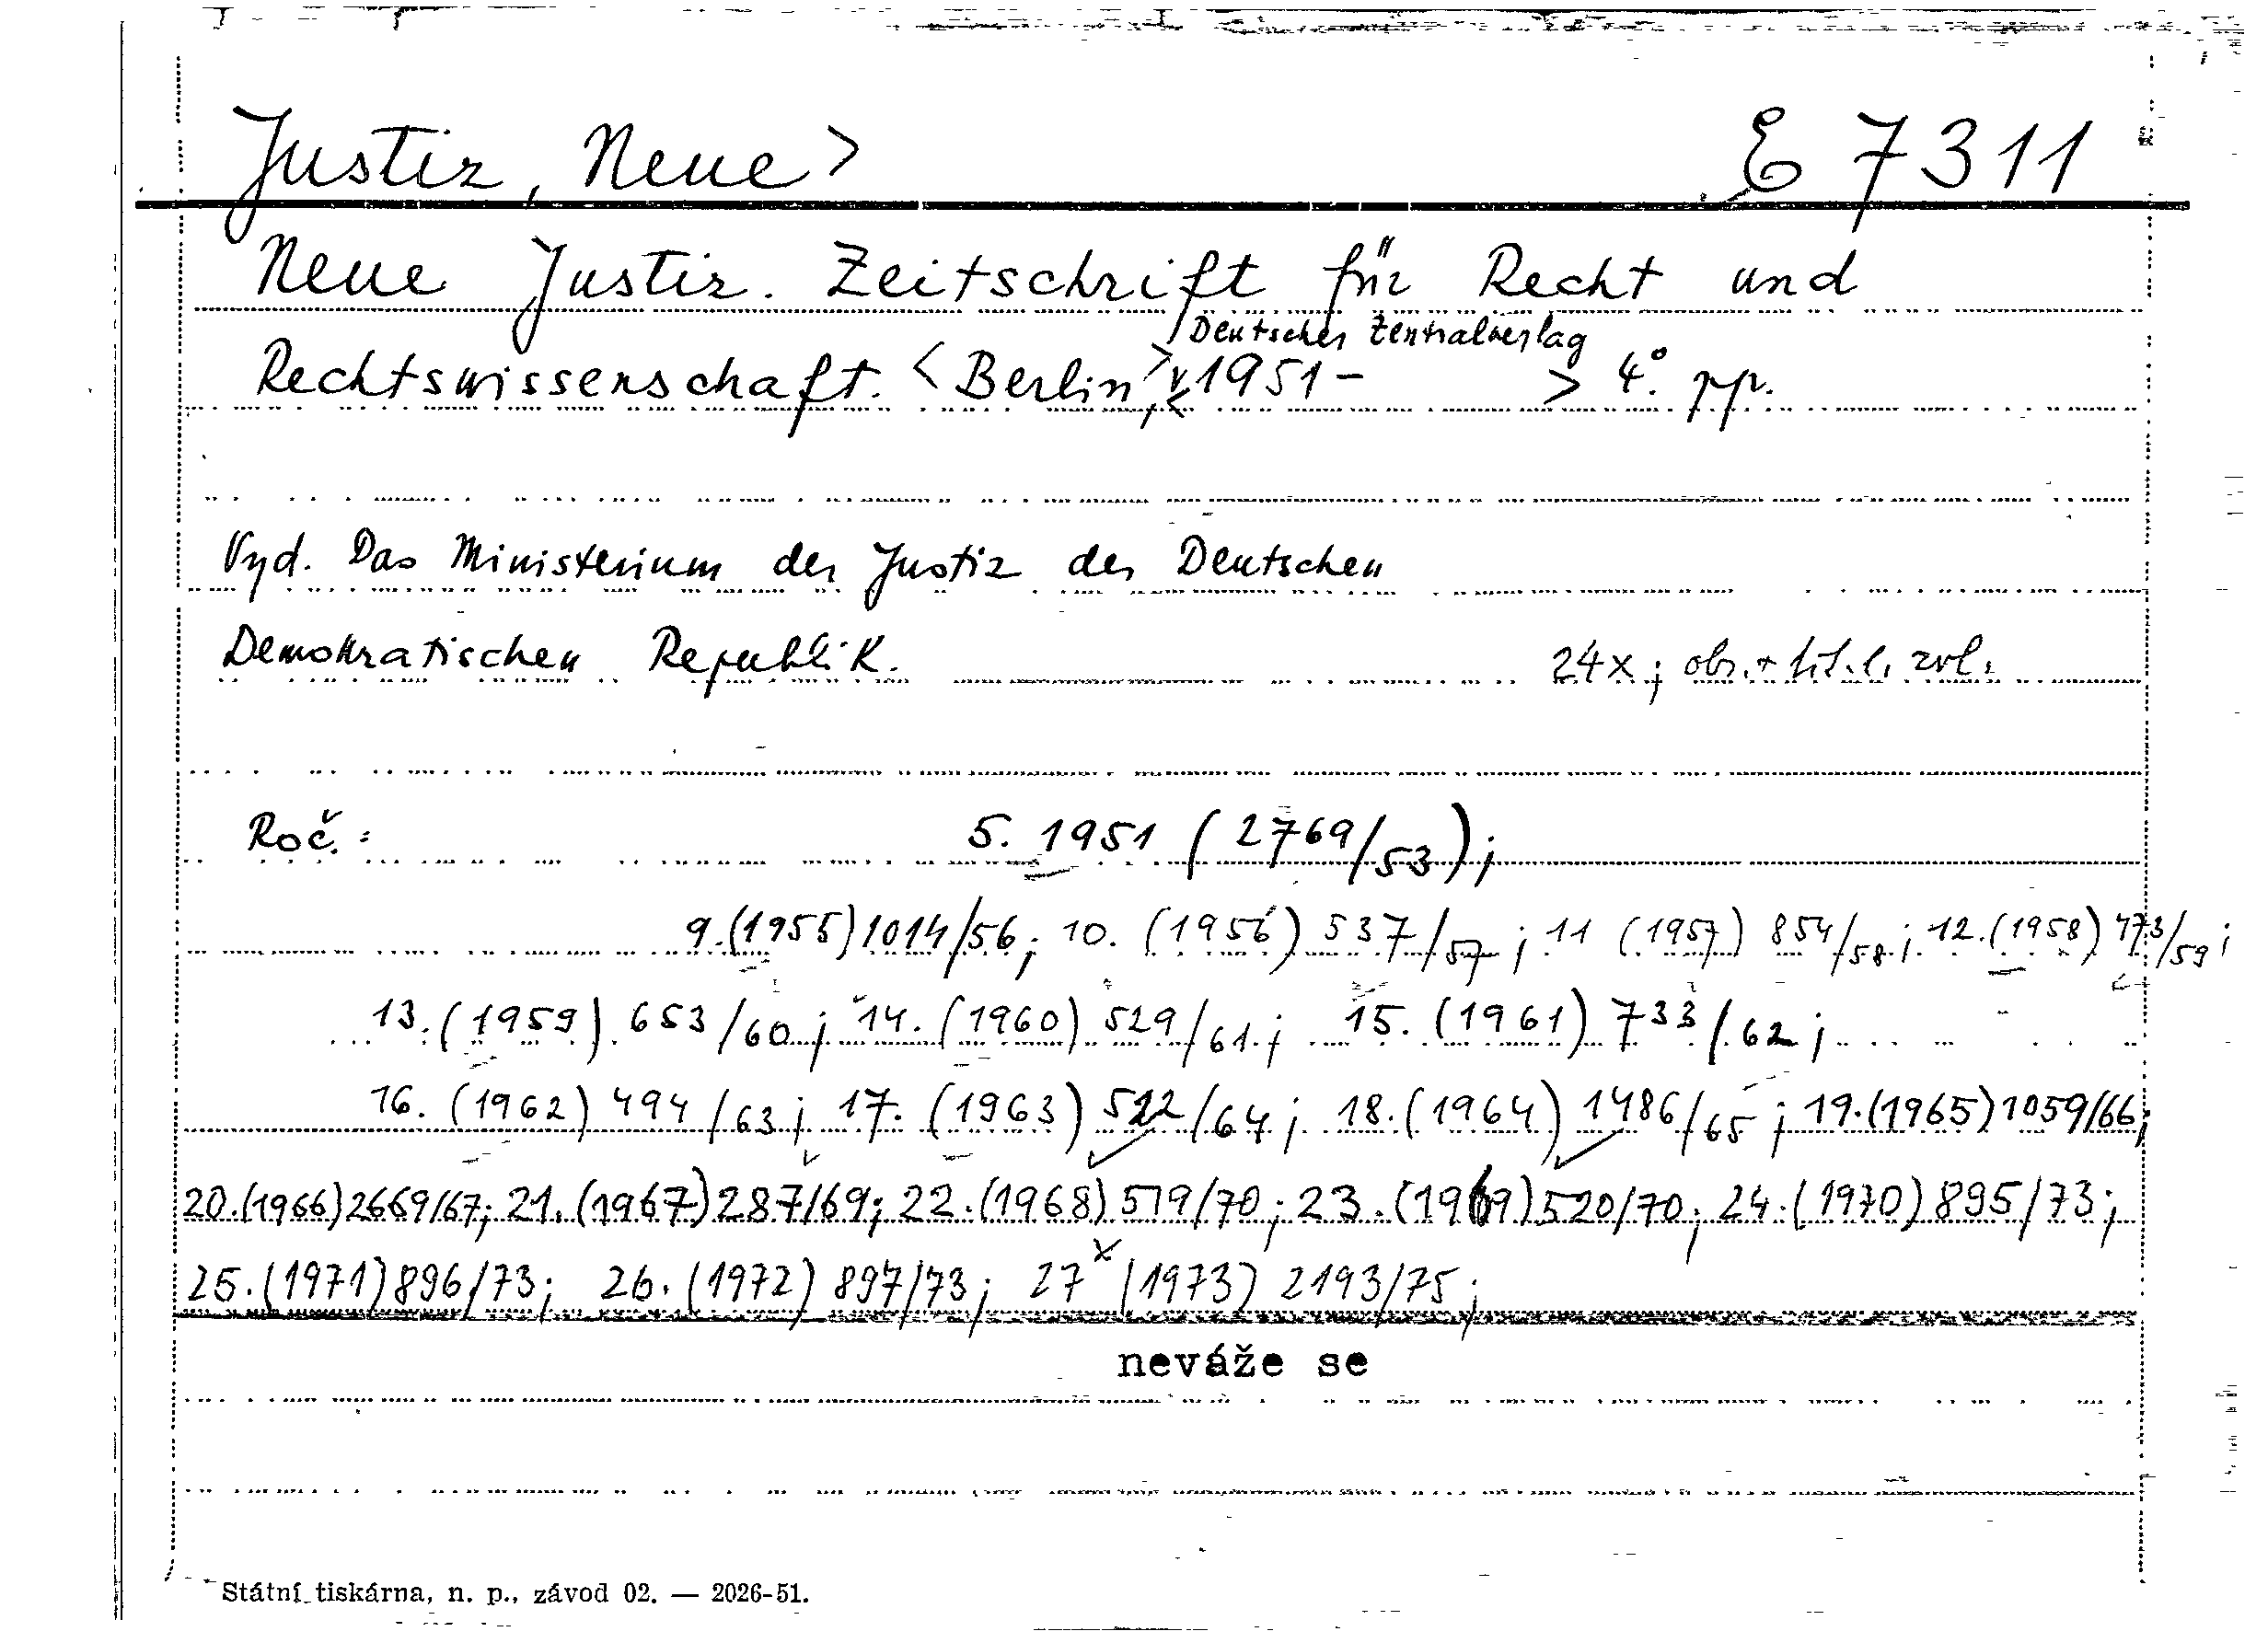 Justiz, Neue> E 7311
Neue Justiz. Zeitschrift für Recht und
Deutscher Zentralverlag
Rechtswissenschaft. <Berlin,> <1951- > 4°. pp.
Vyd. Das Ministerium der Justiz der Deutschen
Demokratischen Republik. 24x; obr. + tit. l. zvl.
Roč.: 5. 1951 (2769/53);
9.(1955)1014/56; 10. (1956) 537/57; 11 (1957) 854/58; 12.(1958) 473/59;
13.(1959) 653/60; 14. (1960) 529/61; 15. (1961) 733/62;
16. (1962) 494/63; 17. (1963) 522/64; 18.(1964) 1486/65; 19.(1965)1059/66;
20.(1966)2669/67; 21.(1967)287/69; 22.(1968)519/70; 23.(1969)520/70; 24.(1970)895/73;
25.(1971)896/73; 26.(1972) 897/73; 27x (1973) 2193/75;
neváže se
Státní tiskárna, n. p., závod 02. — 2026-51.